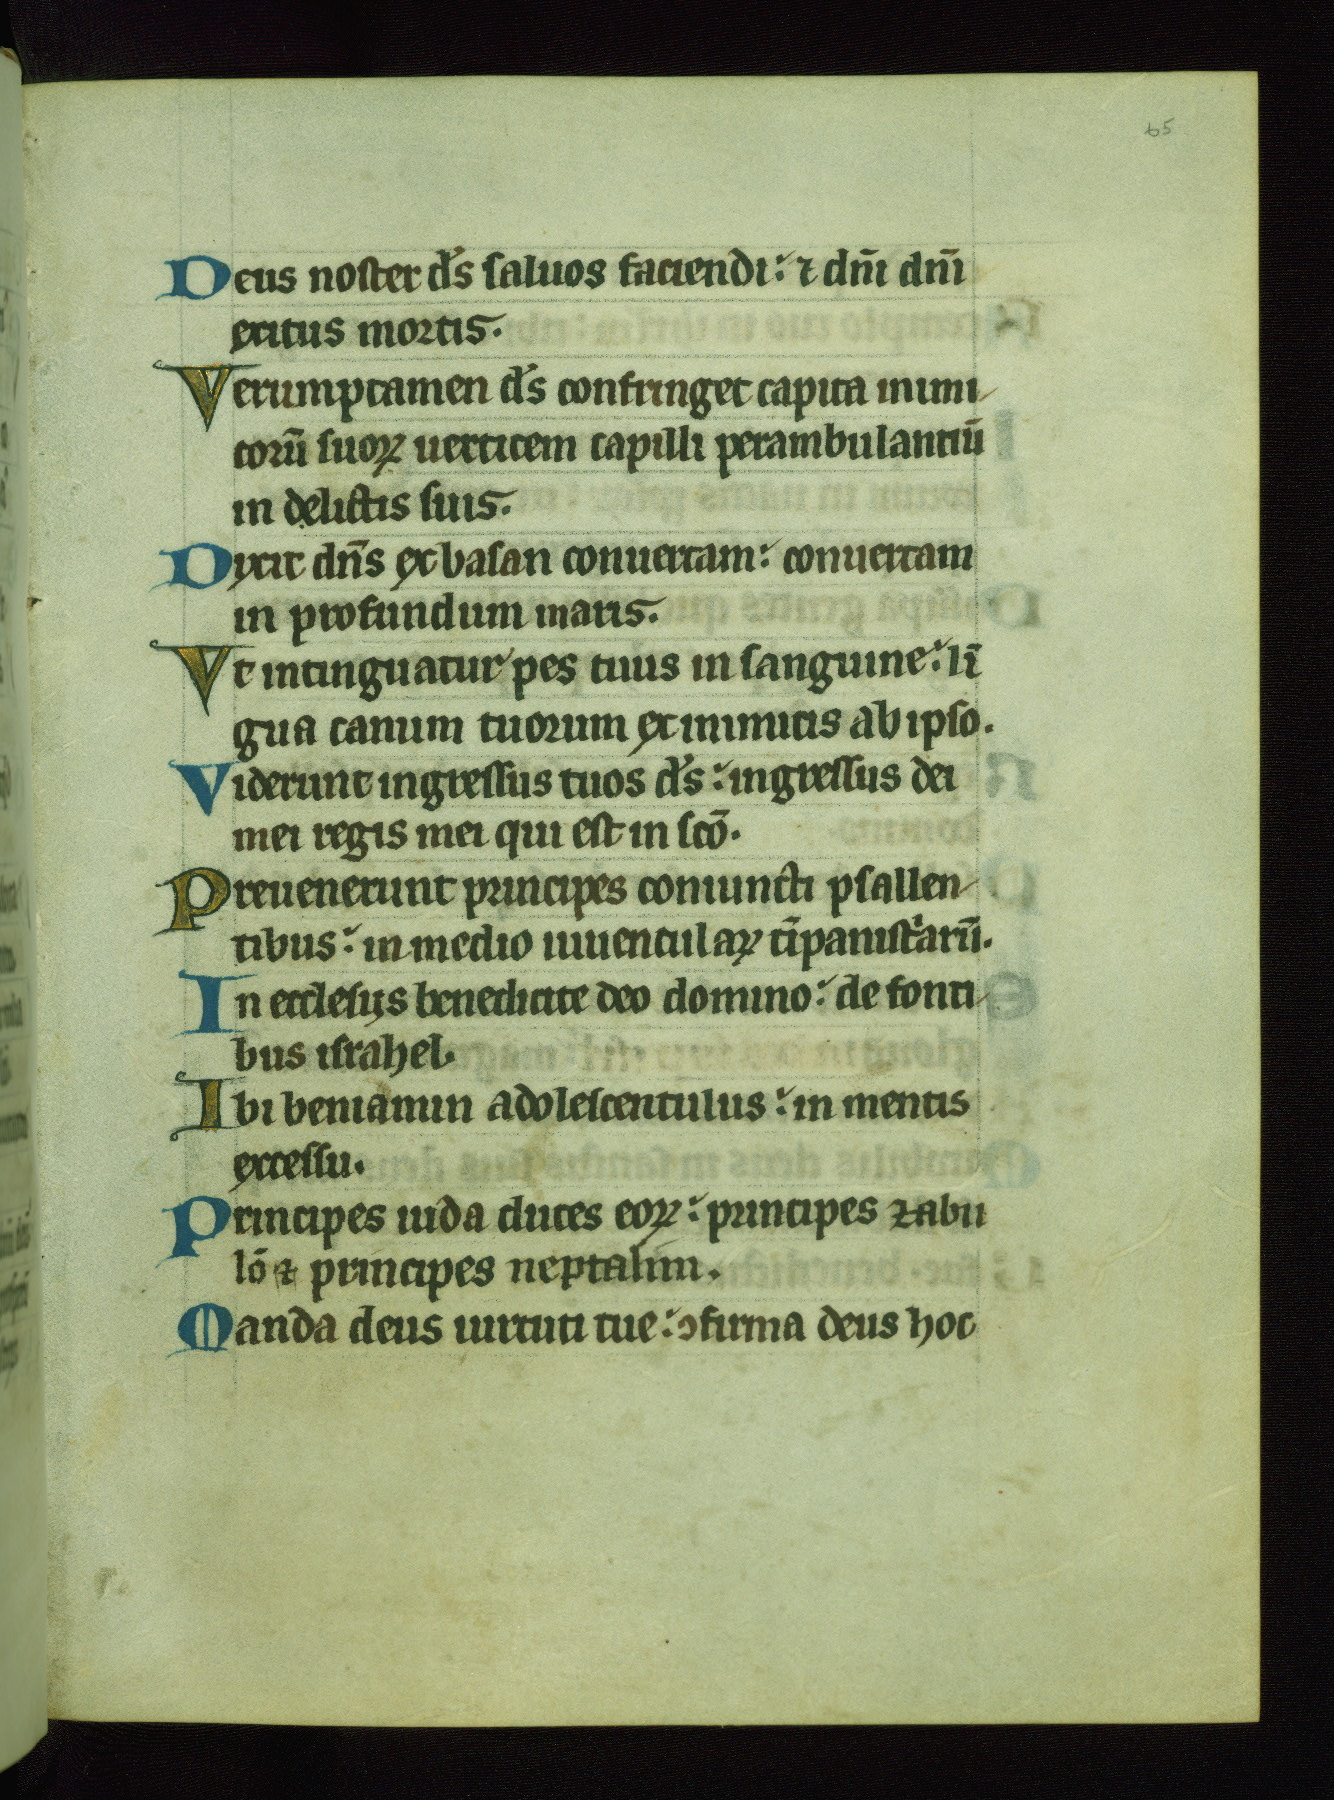 65
Deus noster d̃s saluos faciendi: ⁊ dñi dñi
exitus mortis.
Verumptamen d̃s confringet capita inimi
corũ suoꝝ uerticem capilli perambulantiũ
in delictis suis.
Dixit dñs ex basan conuertam: conuertam
in profundum maris.
Vt intinguatur pes tuus in sanguine: lĩ
gua canum tuorum ex inimicis ab ipso.
Viderunt ingressus tuos d̃s: ingressus dei
mei regis mei qui est in scõ.
Preuenerunt principes coniuncti psallen
tibus: in medio iuuenculaꝝ tĩpanistͥarũ.
In ecclesijs benedicite deo domino: de fonti
bus israhel.
Ibi beniamin adolescentulus: in mentis
excessu.
Principes iuda duces eoꝝ: principes zabu
lõ ⁊ principes neptalim.
Manda deus uirtuti tue: ꝯfirma deus hoc